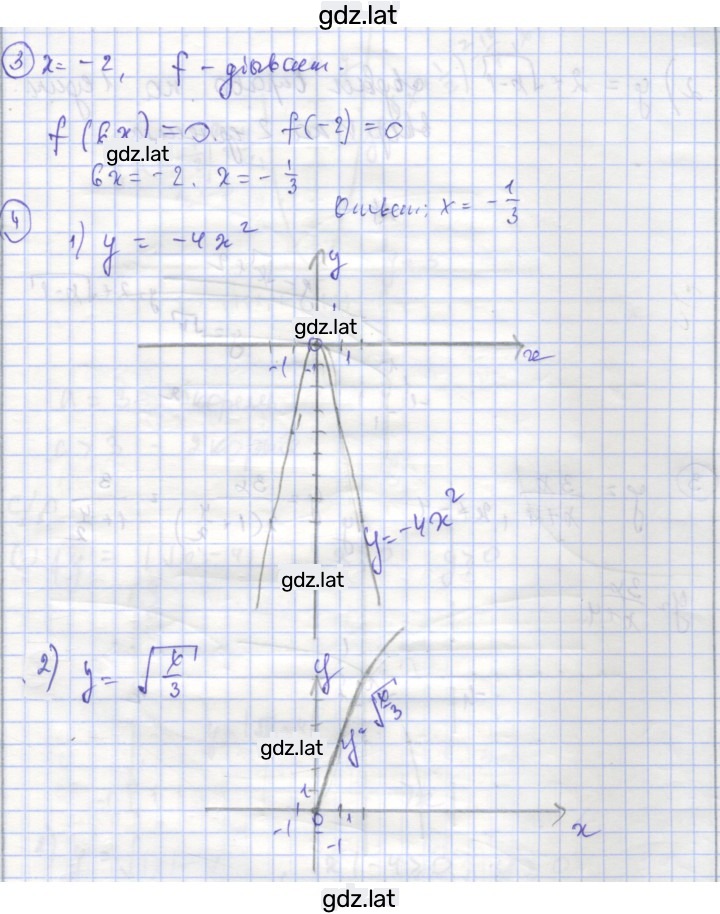 gdz.lat
③ x = -2, f -
f(6x) = 0. f(-2) = 0
gdz.lat
6x = -2. x = -1/3
Ответ: x = -1/3
④
1) y = -4x²
y
gdz.lat
-1 1 x
-1
y = -4x²
gdz.lat
2) y = √(x/3)
y
y = √(x/3)
gdz.lat
1
-1 0 1 x
-1
gdz.lat